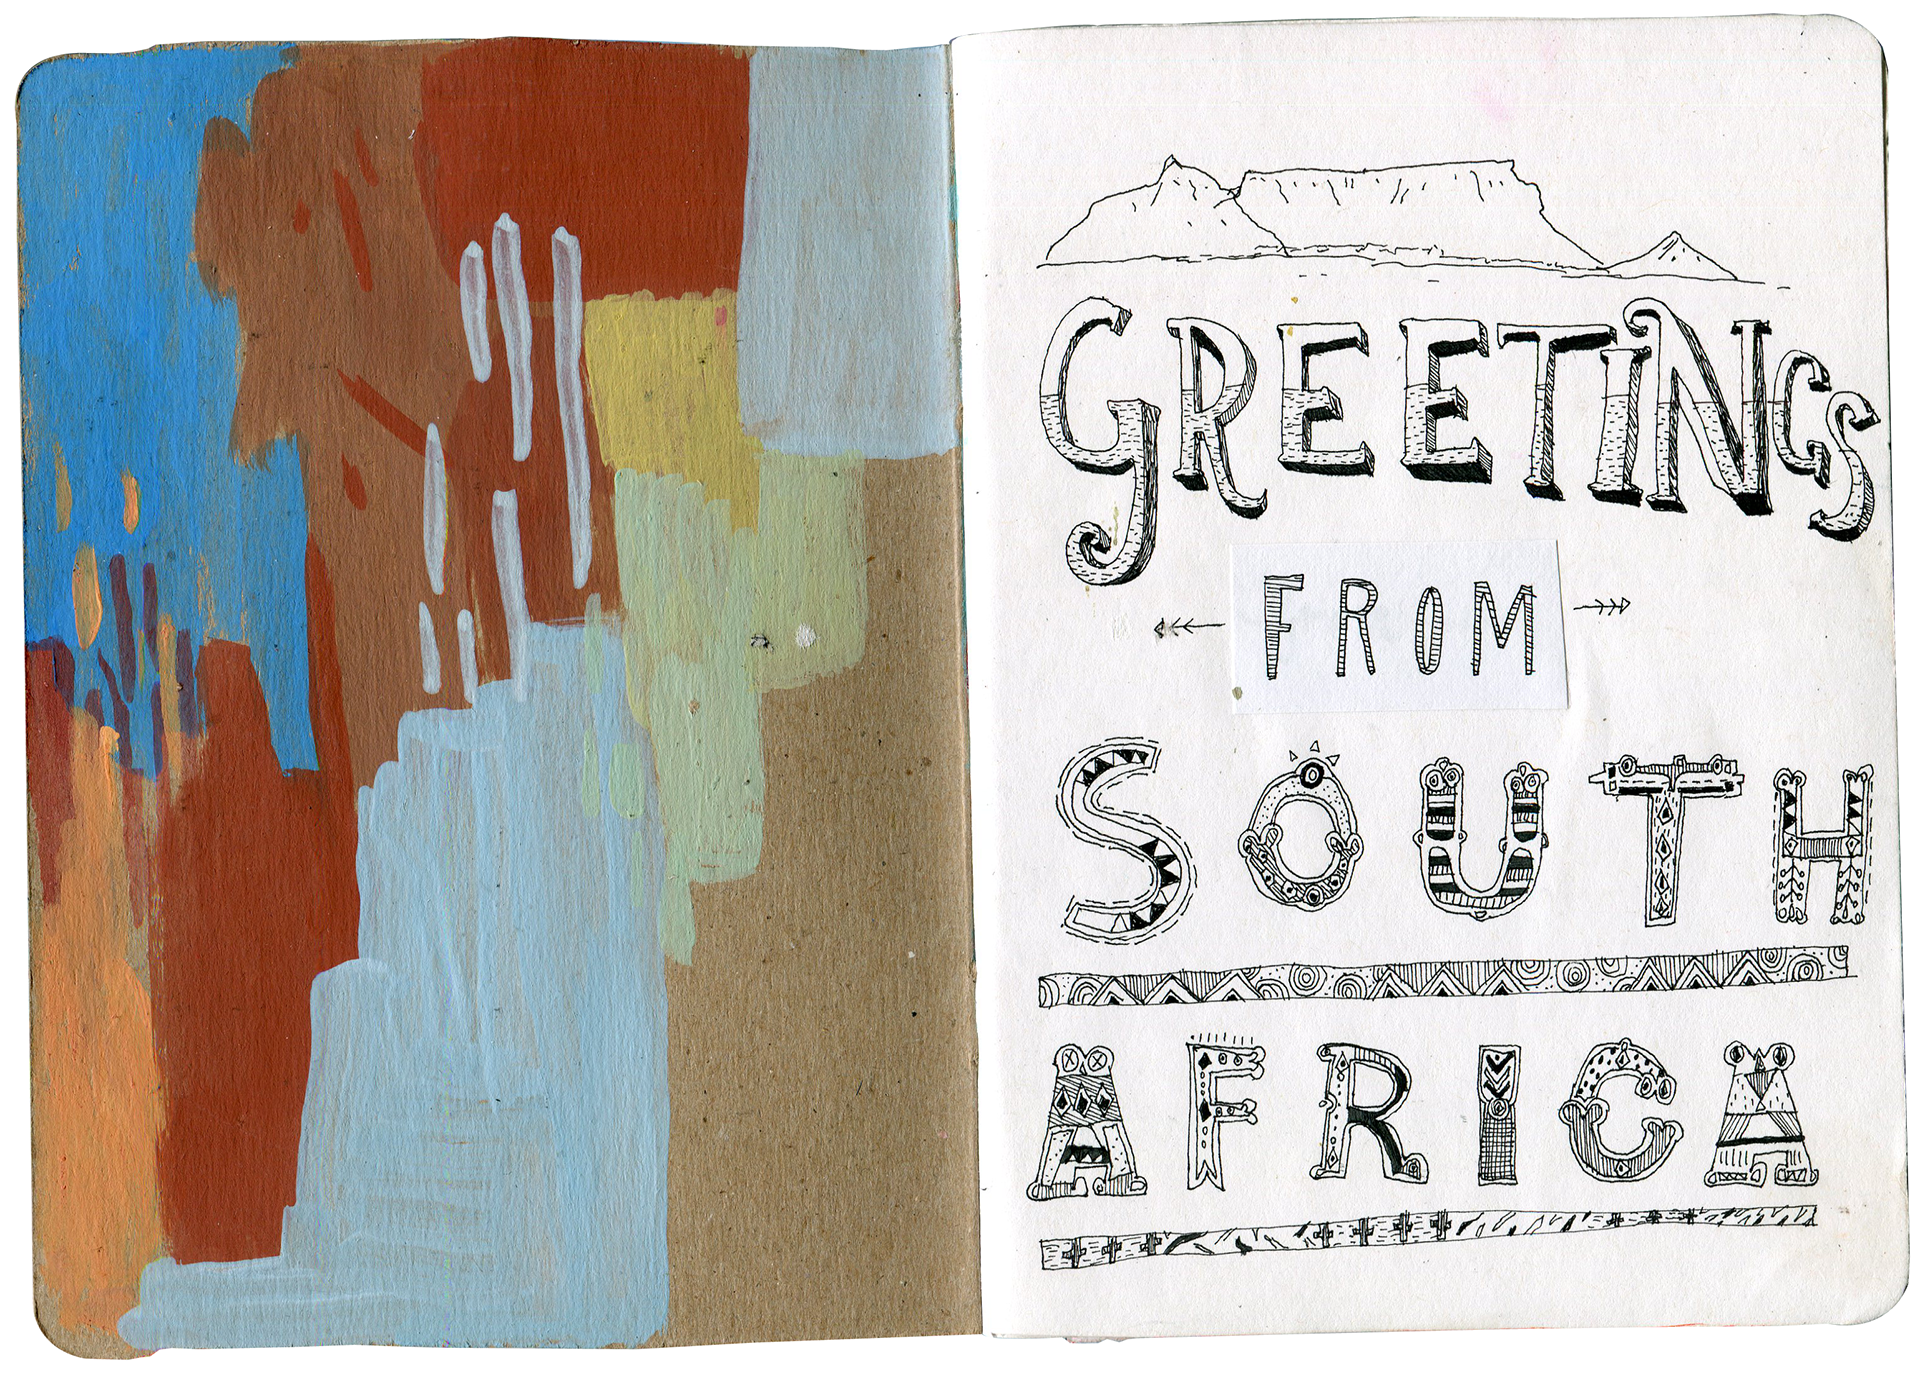 GREETINGS
FROM
SOUTH
AFRICA